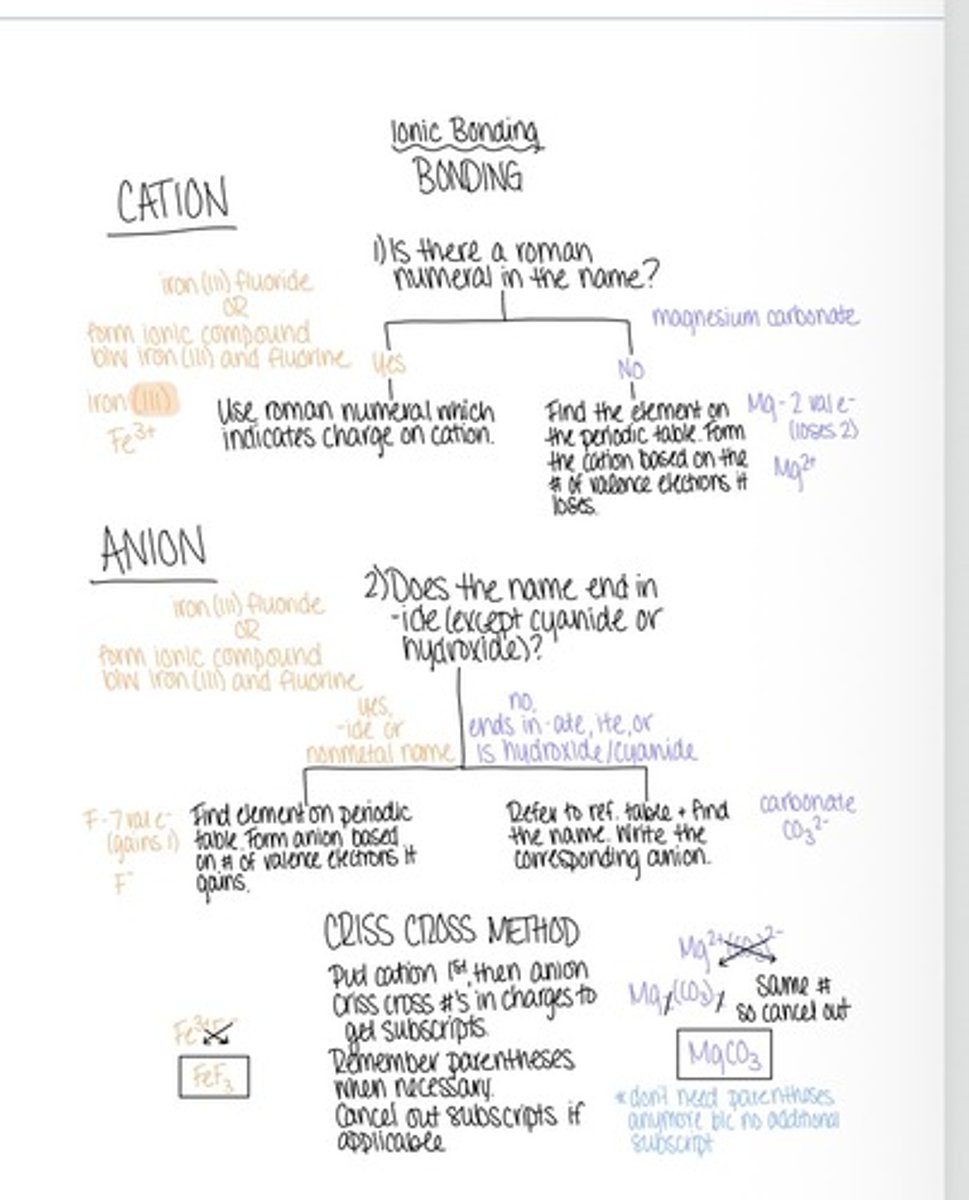 Ionic Bonding
BONDING
CATION
1) Is there a roman
numeral in the name?
iron (III) fluoride
OR
form ionic compound
b/w iron (III) and fluorine
iron (III)
Fe3+
yes
Use roman numeral which
indicates charge on cation.
magnesium carbonate
No
Find the element on
the periodic table. Form
the cation based on the
# of valence electrons it
loses.
Mg - 2 val e-
(loses 2)
Mg2+
ANION
2) Does the name end in
-ide (except cyanide or
hydroxide)?
iron (III) fluoride
OR
form ionic compound
b/w iron (III) and fluorine
yes,
-ide or
nonmetal name
no,
ends in -ate, ite, or
is hydroxide/cyanide
F - 7 val e-
(gains 1)
F-
Find element on periodic
table. Form anion based
on # of valence electrons it
gains.
Refer to ref. table + find
the name. Write the
corresponding anion.
carbonate
CO3 2-
CRISS CROSS METHOD
Put cation 1st, then anion
criss cross #'s in charges to
get subscripts.
Remember parentheses
when necessary.
Cancel out subscripts if
applicable
Fe3+
FeF3
Mg2+ (CO3)2-
Mg (CO3)
same #
so cancel out
MgCO3
* don't need parentheses
anymore b/c no additional
subscript